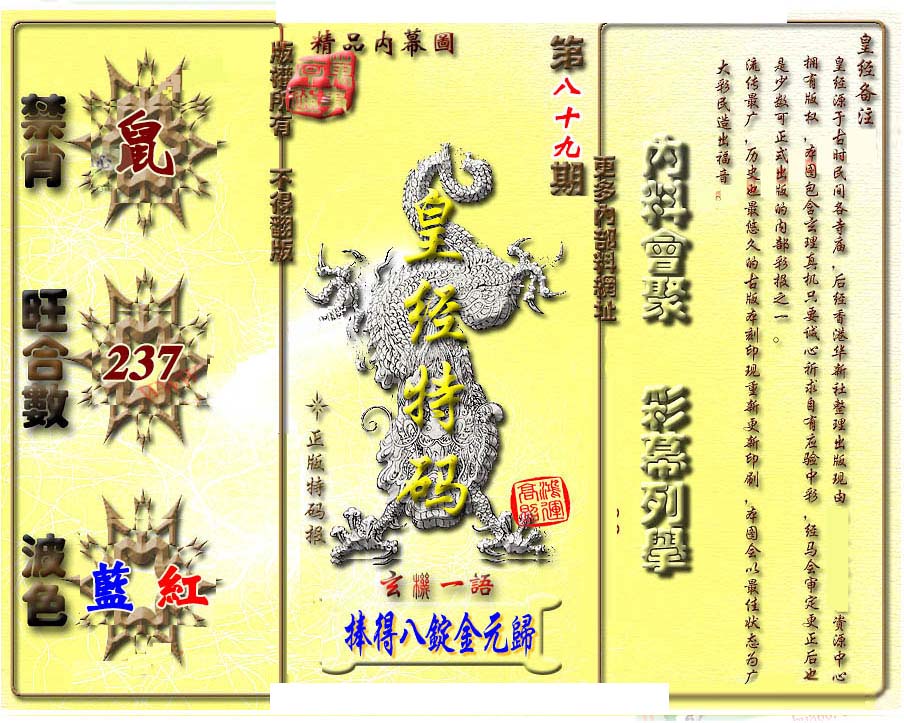 精品内幕圖
第八十九期
版權所有 不得翻版
更多內部料網址
禁肖
鼠
旺合數
237
波色
藍 紅
皇经特码
正版特码报
鴻運
高照
玄機一語
捧得八錠金元歸
内料會聚 彩幕列舉
皇经备注
皇经源于古时民间各寺庙,后经香港华新社整理出版现由 资源中心
拥有版权,本图包含玄理真机只要诚心祈求自有应验中彩,经马会审定更正后也
是少数可正式出版的内部彩报之一。
流传最广,历史也最悠久的古版本刻印现重新更新印刷,本图会以最佳状态为广
大彩民造出福音